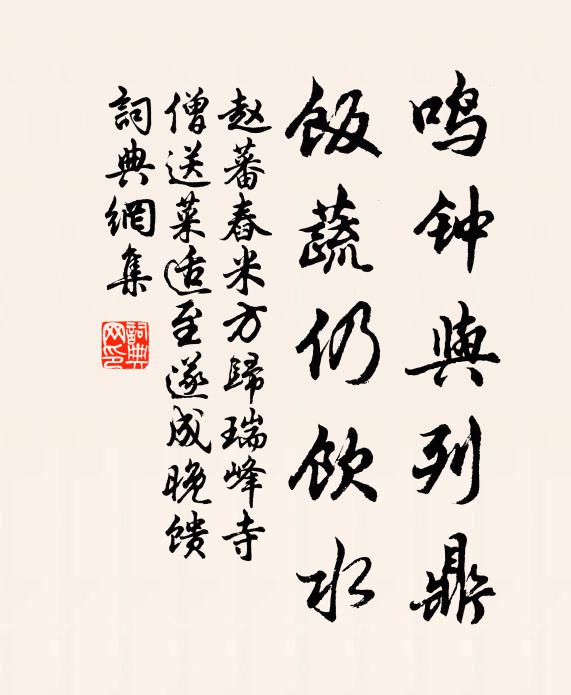 鸣钟與列鼎
飯蔬仍飲水
赵蕃舂米方歸瑞峰寺
僧送菜适至遂成晚馈
詞典網集
詞典网印